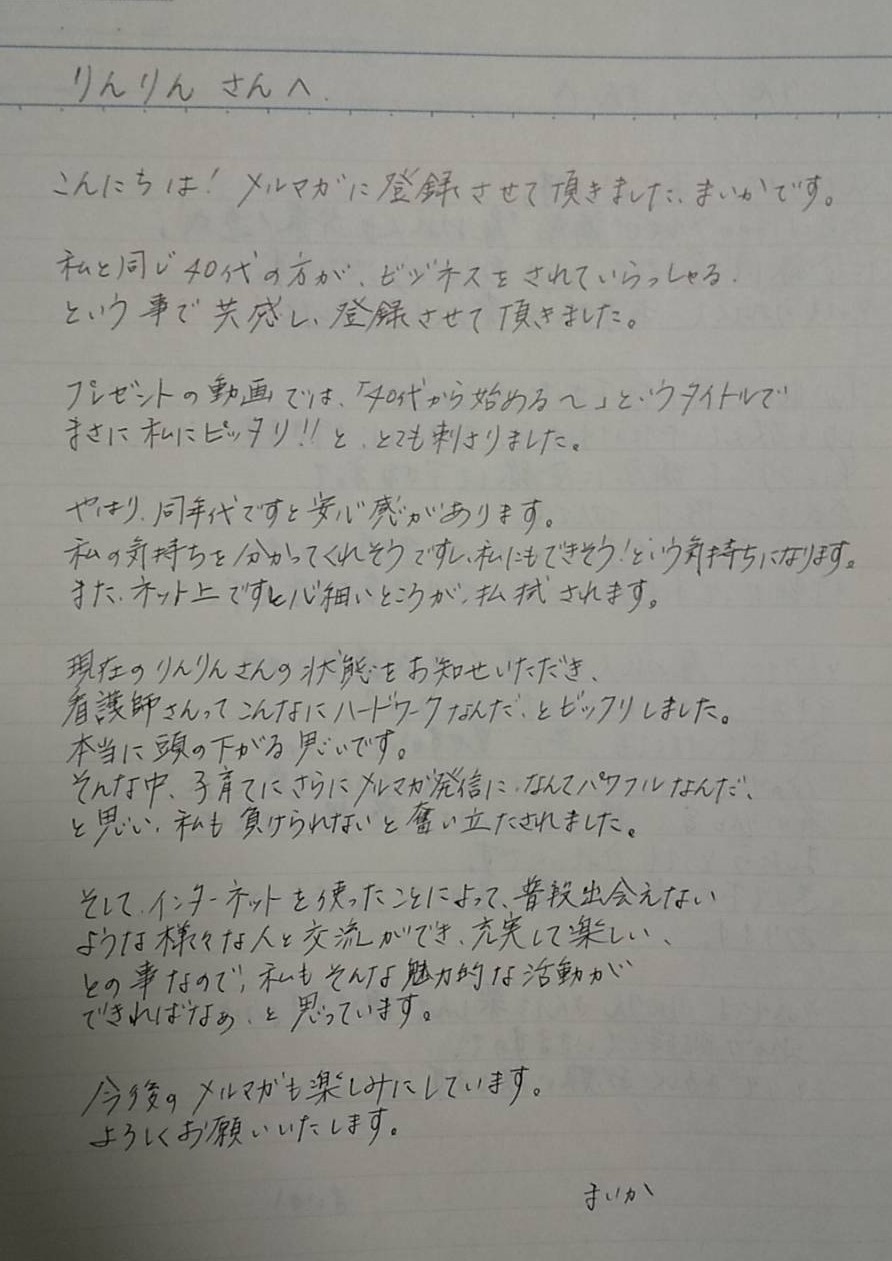 りんりん さんへ.
こんにちは! メルマガに登録させて頂きました、まいかです。
私と同じ40代の方が、ビジネスをされていらっしゃる、
という事で共感し、登録させて頂きました。
プレゼントの動画では、「40代から始める〜」というタイトルで
まさに私にピッタリ!!と、とても刺さりました。
やはり、同年代ですと安心感があります。
私の気持ちを分かってくれそうですし、私にもできそう!という気持ちになります。
また、ネット上ですと心細いところが、払拭されます。
現在のりんりんさんの状態をお知せいただき、
看護師さんってこんなにハードワークなんだ、とビックリしました。
本当に頭の下がる思いです。
そんな中、子育てにさらにメルマガ発信に、なんてパワフルなんだ、
と思い、私も負けられないと奮い立たされました。
そして、インターネットを使ったことによって、普段出会えない
ような様々な人と交流ができ、充実して楽しい、
との事なので、私もそんな魅力的な活動が
できればなぁ、と思っています。
今後のメルマガも楽しみにしています。
よろしくお願いいたします。
まいか